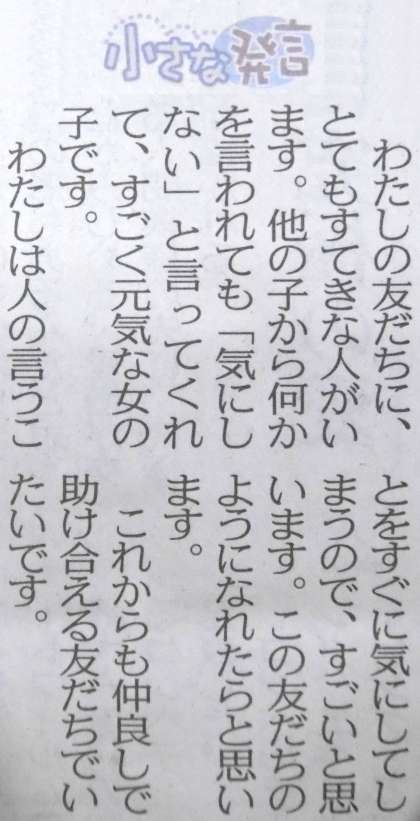 小さな発言
わたしの友だちに、
とてもすてきな人がい
ます。他の子から何か
を言われても「気にし
ない」と言ってくれ
て、すごく元気な女の
子です。
わたしは人の言うこ
とをすぐに気にしてし
まうので、すごいと思
います。この友だちの
ようになれたらと思い
ます。
これからも仲良しで
助け合える友だちでい
たいです。